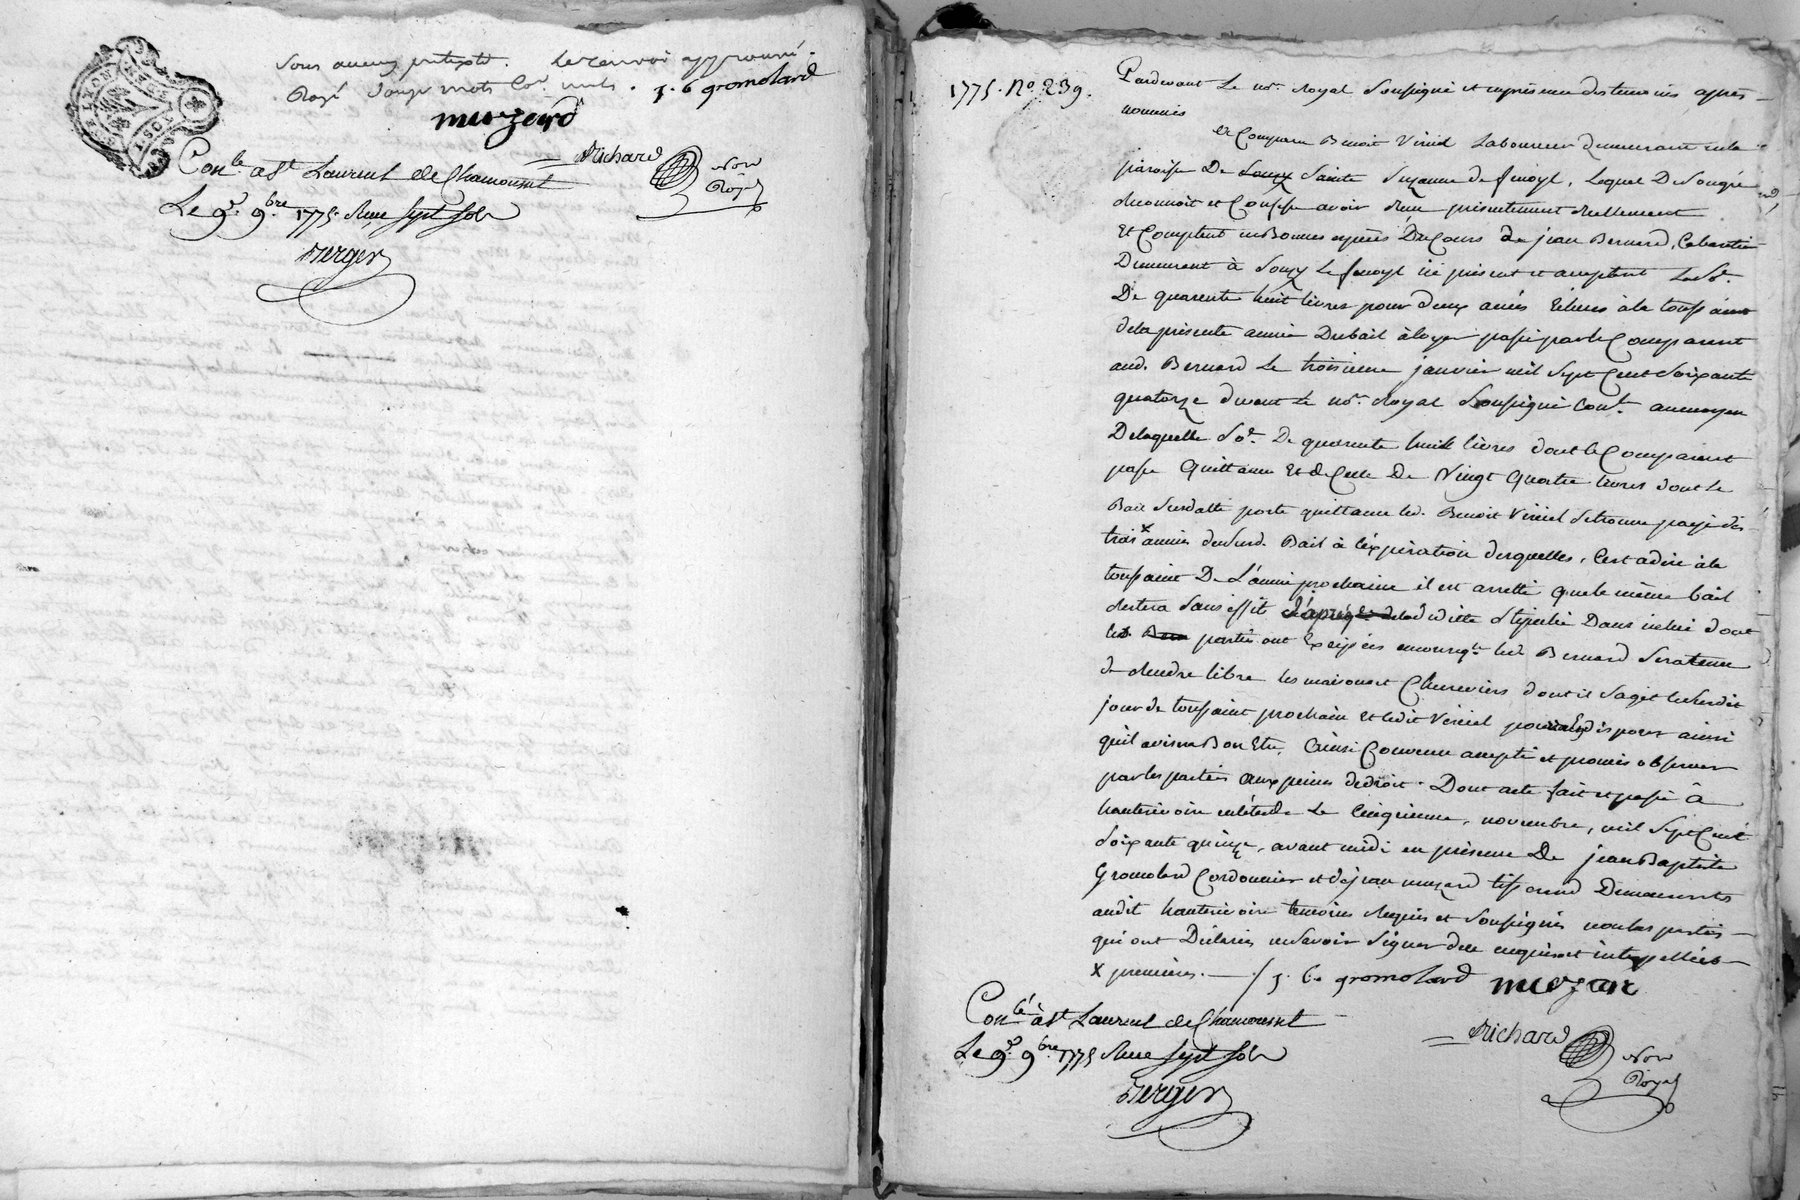 sous aucun pretexte. le renvoi approuvé.
Rayé douze mots Co. nuls. J. B gromolard
muzard
Con.lé a St Laurent de Chamousset
Richard
Nore
Royal
Le 9.e 9.bre 1775. Reçu sept sols
Berger
GEN. DE LYON
1775. No. 239.
Pardevant Le no.re Royal soussigné et en présence des temoins après
nommés
est Comparu Benoit Viriel Laboureur demeurant en la
paroisse De Souzy Sainte Suzanne de finoyl, Lequel De son gré
Reconnoit et Confesse avoir Reçu presentement Reellement
Et Comptent en Bonnes espèces Du Cours de jean Bernard, Cabaretier
Demeurant à Souzy Le finoyl ici présent et acceptent La So.e
De quarente huit livres pour deux anées Echues à la toussaint
de la présente année Du bail à loyer passé par le Comparent
aud. Bernard Le troisieme janvier mil Sept Cent Soixante
quatorze devant le no.re Royal Soussigné Con.lé au moyen
De laquelle So.e De quarente huit livres dont le Comparent
passe Quittance Et de Celle De Vingt Quatre livres dont le
Bail Susdatté porte quittance led. Benoit Viriel se trouve payé des
trois x années du Susd. Bail à l'éxpiration desquelles, C'est adire à la
toussaint De L'année prochaine il est arretté que le même bail
Restera Sans effet stipulée Dans icelui dont
les parties ont Excipées encore q.le led Bernard Sera tenu
de Rendre libre les maison et Cheneviers dont il S'agit le Susdit
jour de toussaint prochain Et ledit Viriel pourra En disposer ainsi
qu'il avisera Bon Etre, Ainsi Convenu accepté et promis observer
par les parties aux peines de droit. Dont acte fait et passé à
hauterivoire en l'étude Le Cinquieme, novembre, mil Sept Cent
Soixante quinze, avant midi en présence De jean Baptiste
Gromolard Cordonnier et de jean muzard tisserand Demeurants
audit hauterivoire temoins Requis et Soussignés non les parties
qui ont Déclarées ne Savoir Signer de ce enquises et interpellées
x premières. J. B. gromolard muzard
Con.lé à St Laurent de Chamousset
Richard
Le 9.e 9.bre 1775 Reçu sept sols
Nore
Royal
Berger